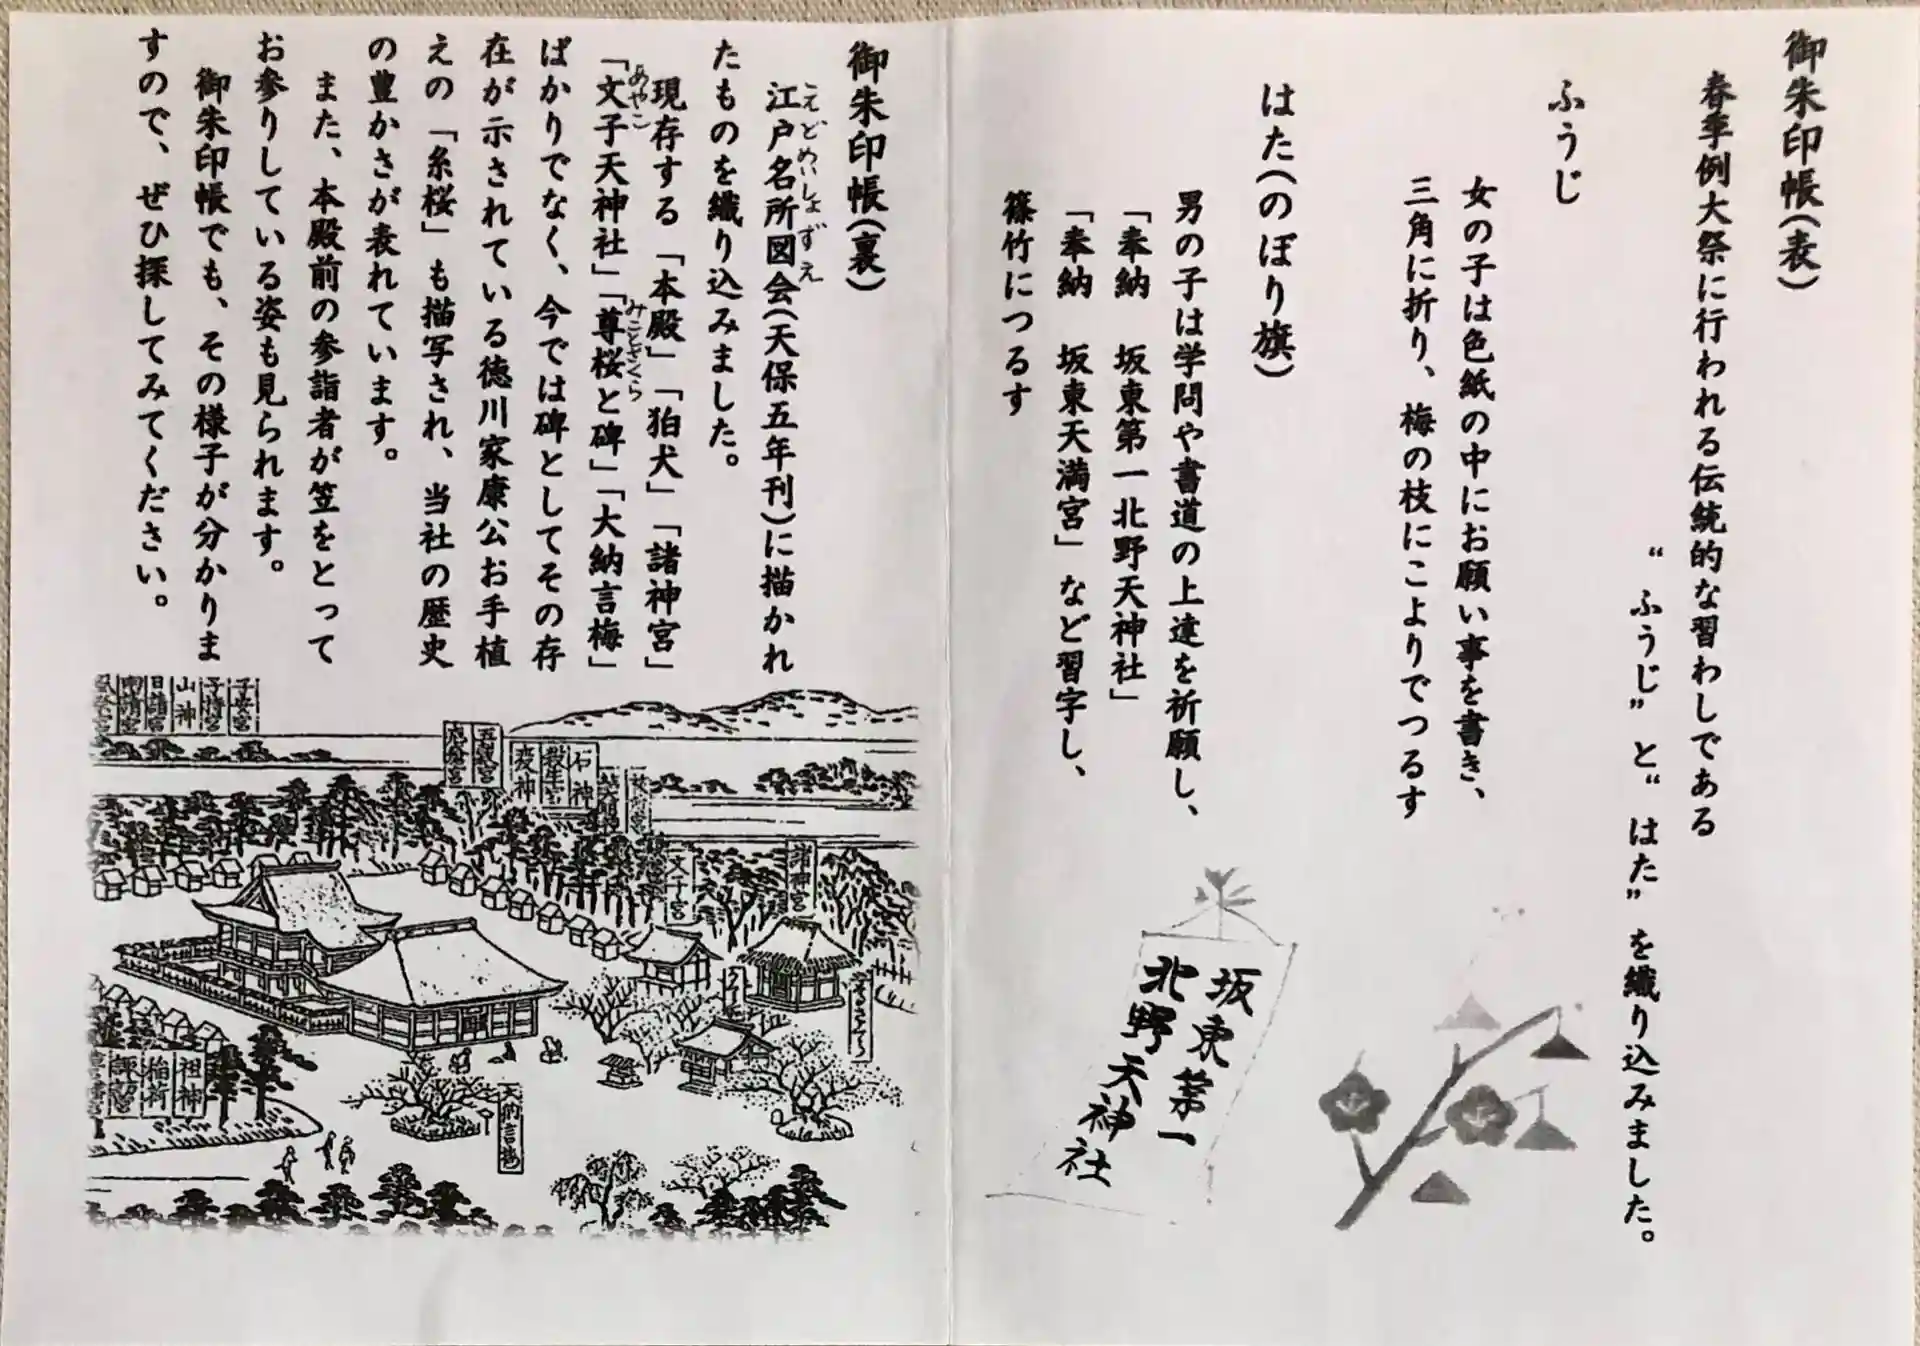 御朱印帳(表)
春季例大祭に行われる伝統的な習わしである
“ふうじ”と“はた”を織り込みました。
ふうじ
女の子は色紙の中にお願い事を書き、
三角に折り、梅の枝にこよりでつるす
はた(のぼり旗)
男の子は学問や書道の上達を祈願し、
「奉納 坂東第一北野天神社」
「奉納 坂東天満宮」など習字し、
篠竹につるす
坂東第一
北野天神社
御朱印帳(裏)
江戸名所図会(天保五年刊)に描かれ
えどめいしょずえ
たものを織り込みました。
現存する「本殿」「狛犬」「諸神宮」
「文子天神社」「尊桜と碑」「大納言梅」
あやこ
みことざくら
ばかりでなく、今では碑としてその存
在が示されている徳川家康公お手植
えの「糸桜」も描写され、当社の歴史
の豊かさが表れています。
また、本殿前の参詣者が笠をとって
お参りしている姿も見られます。
御朱印帳でも、その様子が分かりま
すので、ぜひ探してみてください。
子安宮
子持宮
山神
日諸宮
石神
殺生宮
疫神
諸神宮
文子宮
祖神
稲荷
諏訪宮
大納言梅